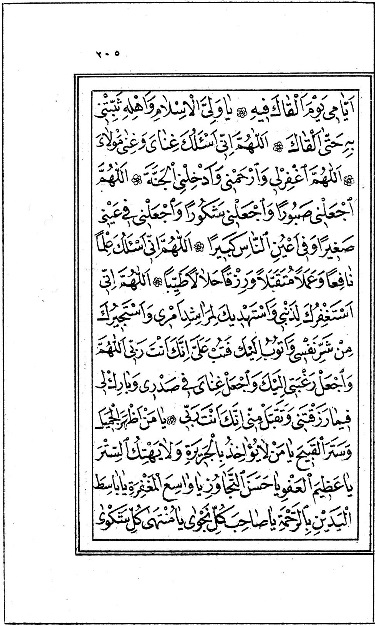 ٢٠٥
اَيَّامِي يَوْمَ اَلْقَاكَ فِيهِ ❁ يَا وَلِيَّ الْاِسْلَامِ وَاَهْلِهِ ثَبِّتْنِي
بِهِ حَتَّى اَلْقَاكَ ❁ اَللّٰهُمَّ اِنِّي اَسْئَلُكَ غِنَايَ وَغِنَى مَوْلَايَ
❁ اَللّٰهُمَّ اغْفِرْلِي وَارْحَمْنِي وَاَدْخِلْنِي الْجَنَّةَ ❁ اَللّٰهُمَّ
اجْعَلْنِي صَبُورًا وَاجْعَلْنِي شَكُورًا وَاجْعَلْنِي فِي عَيْنِي
صَغِيرًا وَفِي اَعْيُنِ النَّاسِ كَبِيرًا ❁ اَللّٰهُمَّ اِنِّي اَسْئَلُكَ عِلْمًا
نَافِعًا وَعَمَلًا مُتَقَبَّلًا وَرِزْقًا حَلَالًا طَيِّبًا ❁ اَللّٰهُمَّ اِنِّي
اَسْتَغْفِرُكَ لِذَنْبِي وَاَسْتَهْدِيكَ لِمَرَاشِدِ اَمْرِي وَاَسْتَجِيرُكَ
مِنْ شَرِّ نَفْسِي وَاَتُوبُ اِلَيْكَ فَتُبْ عَلَيَّ اِنَّكَ اَنْتَ رَبِّي اَللّٰهُمَّ
وَاجْعَلْ رَغْبَتِي اِلَيْكَ وَاجْعَلْ غِنَايَ فِي صَدْرِي وَبَارِكْ لِي
فِيمَا رَزَقْتَنِي وَتَقَبَّلْ مِنِّي اِنَّكَ اَنْتَ رَبِّي ❁ يَا مَنْ اَظْهَرَ الْجَمِيلَ
وَسَتَرَ الْقَبِيحَ يَا مَنْ لَا يُؤَاخِذُ بِالْجَرِيرَةِ وَلَا يَهْتِكُ السِّتْرَ
يَا عَظِيمَ الْعَفْوِ يَا حَسَنَ التَّجَاوُزِ يَا وَاسِعَ الْمَغْفِرَةِ يَا بَاسِطَ
الْيَدَيْنِ بِالرَّحْمَةِ يَا صَاحِبَ كُلِّ نَجْوَى يَا مُنْتَهَى كُلِّ شَكْوَى